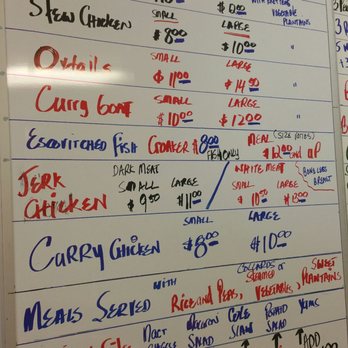 WITH
VEGETABLE
PLANTAINS
STEW CHICKEN
SMALL LARGE
$8.00 $10.00 "
SMALL LARGE
Oxtails $11.00 $14.50 "
Curry Goat SMALL LARGE
$10.00 $12.00 "
ESCOVITCHED FISH CROAKER $8.00 FISH ONLY MEAL (SIZE
$12.00 and UP
JERK CHICKEN DARK MEAT WHITE MEAT
SMALL LARGE SMALL LARGE
$9.50 $11.00
BREAST
SMALL LARGE
CURRY CHICKEN $8.00 $10.00
MEALS SERVED WITH RICE and PEAS, COLLARDS or STEAMED VEGETABLES, SWEET PLANTAINS
MACARONI SALAD
COLE SLAW
POTATO SALAD
YAMS
ADD